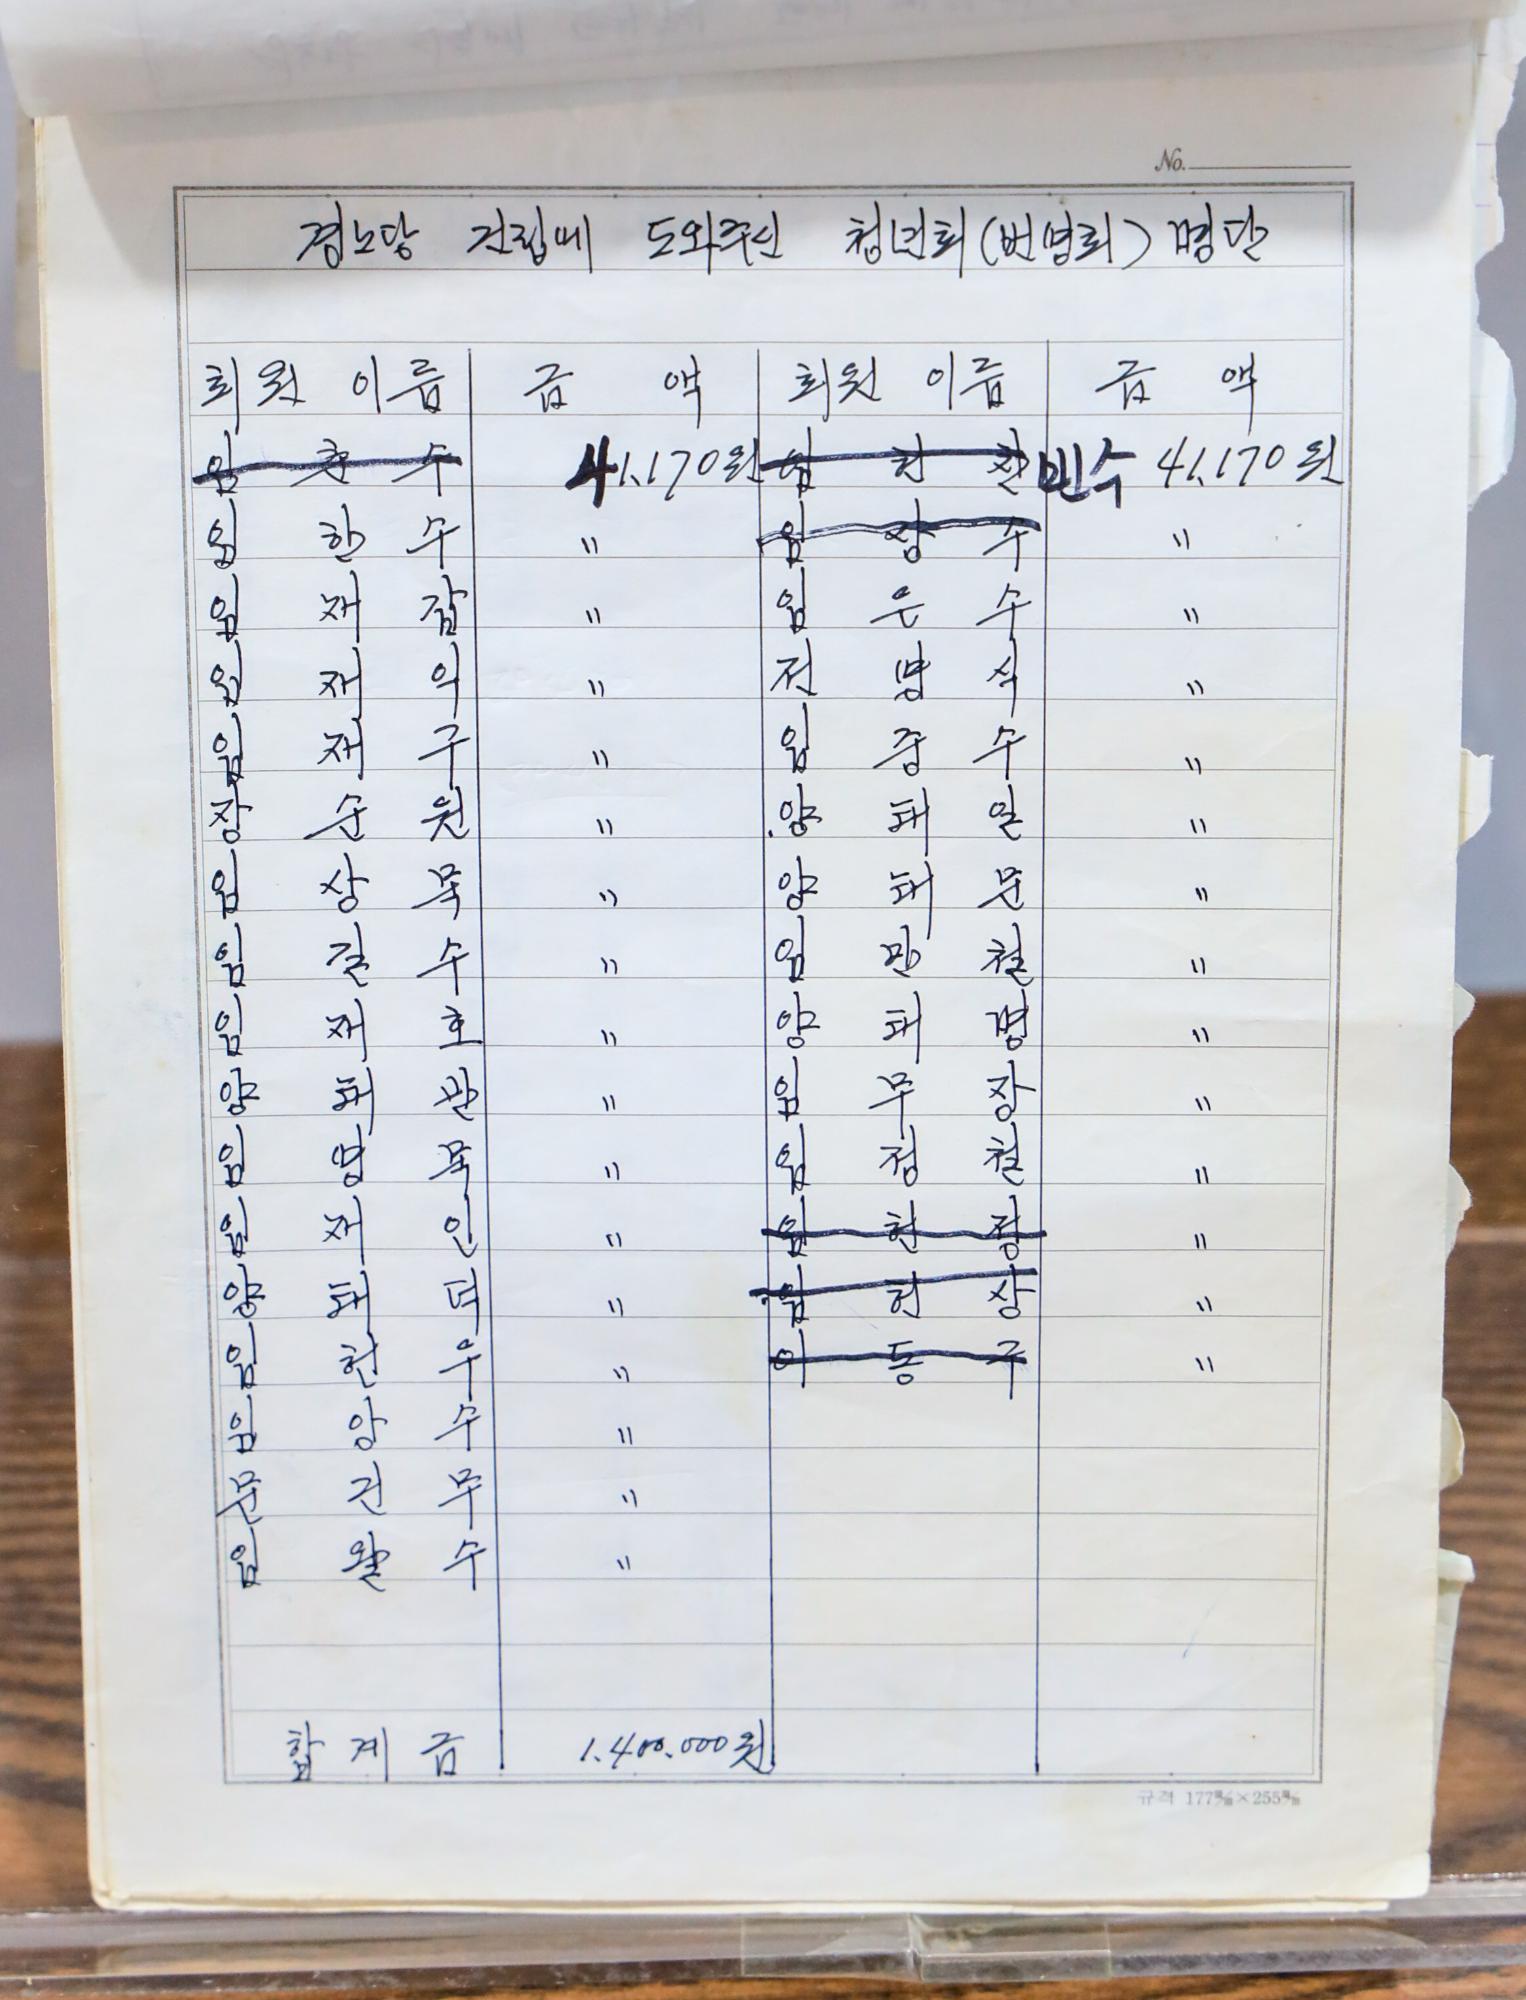 No.
경노당 건립때 도와주신 청년회(번영회) 명단
회원 이름 금 액 회원 이름 금 액
임 춘 수 41.170원 임 헌 찬 민수 41.170원
임 한 수 〃 임 상 수 〃
임 재 갑 〃 임 은 수 〃
임 재 익 〃 전 명 식 〃
임 재 구 〃 임 중 수 〃
장 순 원 〃 양 태 일 〃
임 상 묵 〃 양 태 문 〃
임 길 수 〃 임 만 철 〃
임 재 호 〃 양 태 명 〃
양 태 관 〃 임 무 장 〃
임 영 묵 〃 임 정 철 〃
임 재 인 〃 임 헌 정 〃
양 태 덕 〃 임 헌 상 〃
임 헌 우 〃 이 동 구 〃
임 양 수 〃
문 건 무 〃
임 왈 수 〃
합 계 금 1.400.000원
규격 177㎜×255㎜